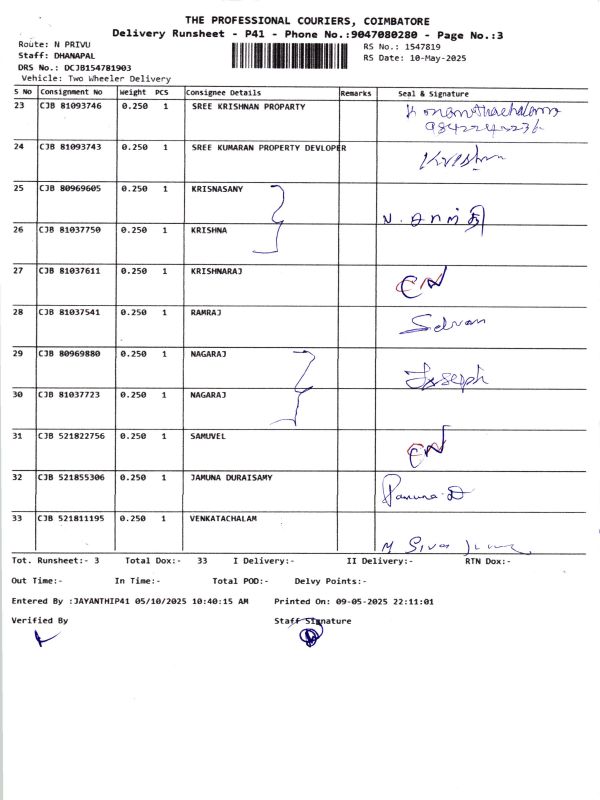 THE PROFESSIONAL COURIERS, COIMBATORE
Delivery Runsheet - P41 - Phone No.:9047080280 - Page No.:3
Route: N PRIVU
RS No.: 1547819
Staff: DHANAPAL
RS Date: 10-May-2025
DRS No.: DCJB154781903
Vehicle: Two Wheeler Delivery
S No Consignment No Weight PCS Consignee Details Remarks Seal & Signature
23 CJB 81093746 0.250 1 SREE KRISHNAN PROPARTY
24 CJB 81093743 0.250 1 SREE KUMARAN PROPERTY DEVLOPER Krishna
25 CJB 80969605 0.250 1 KRISNASANY
26 CJB 81037750 0.250 1 KRISHNA
27 CJB 81037611 0.250 1 KRISHNARAJ
28 CJB 81037541 0.250 1 RAMRAJ Selvan
29 CJB 80969880 0.250 1 NAGARAJ Joseph
30 CJB 81037723 0.250 1 NAGARAJ
31 CJB 521822756 0.250 1 SAMUVEL
32 CJB 521855306 0.250 1 JAMUNA DURAISAMY Jamuna D
33 CJB 521811195 0.250 1 VENKATACHALAM
Tot. Runsheet:- 3 Total Dox:- 33 I Delivery:- II Delivery:- RTN Dox:-
Out Time:- In Time:- Total POD:- Delvy Points:-
Entered By :JAYANTHIP41 05/10/2025 10:40:15 AM Printed On: 09-05-2025 22:11:01
Verified By Staff Signature